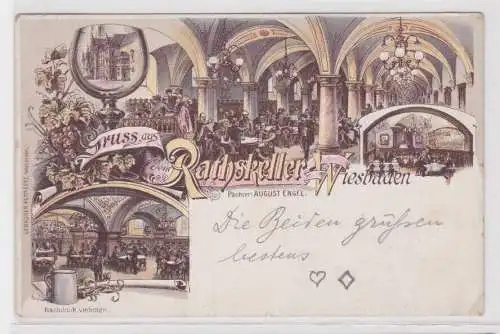 Gruss aus
dem
Rathskeller-Wiesbaden
Pächter: AUGUST ENGEL.
Die Beiden grüßen
bestens
♡ ◇
Nachdruck verboten.